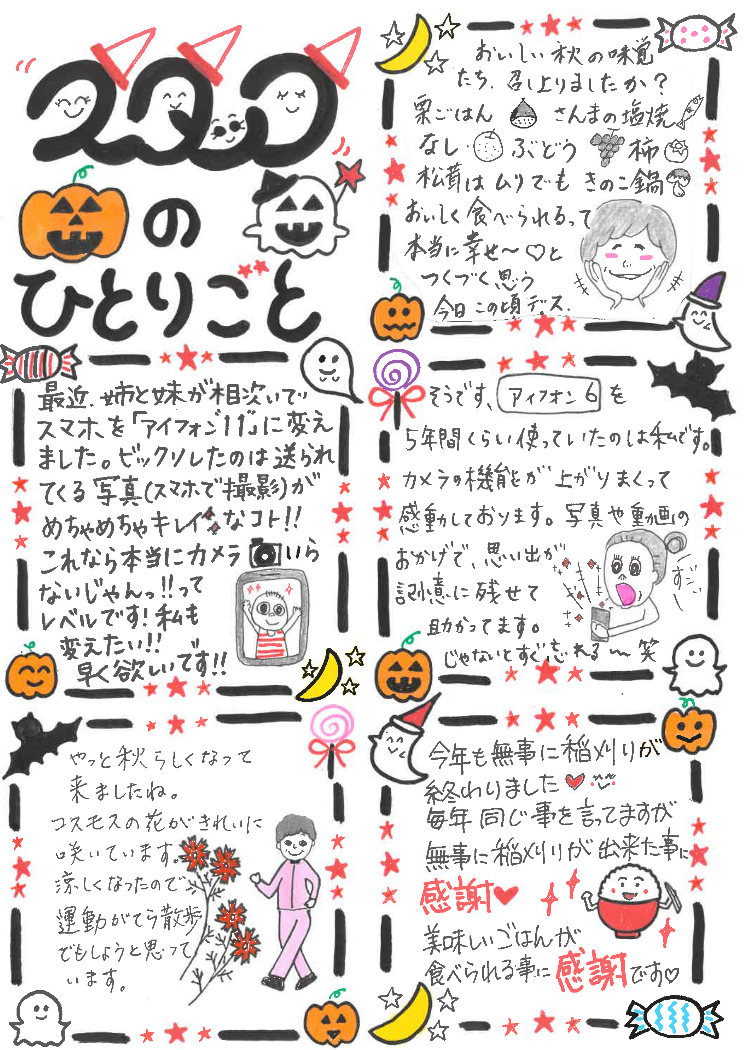 の
ひとりごと
おいしい秋の味覚
たち、召し上りましたか?
栗ごはん さんまの塩焼
なし ぶどう 柿
松茸はムリでも きのこ鍋
おいしく食べられるって
本当に幸せ〜♡と
つくづく思う
今日この頃デス.
最近、姉と妹が相次いで
スマホを「アイフォン11」に変え
ました。ビックリしたのは送られ
てくる写真(スマホで撮影)が
めちゃめちゃキレイなコト!!
これなら本当にカメラ いら
ないじゃんっ!!って
レベルです!私も
変えたい!!
早く欲しいです!!
そうです、アイフォン6を
5年間くらい使っていたのは私です。
カメラの機能とが上がりまくって
感動しております。写真や動画の
おかげで、思い出が
記憶に残せて
助かってます。
じゃないとすぐ忘れる〜笑
すごーい
やっと秋らしくなって
来ましたね。
コスモスの花がきれいに
咲いています。
涼しくなったので、
運動がてら散歩
でもしようと思って
います。
今年も無事に稲刈りが
終わりました♥
毎年同じ事を言ってますが
無事に稲刈りが出来た事に
感謝♥
美味しいごはんが
食べられる事に感謝です♡